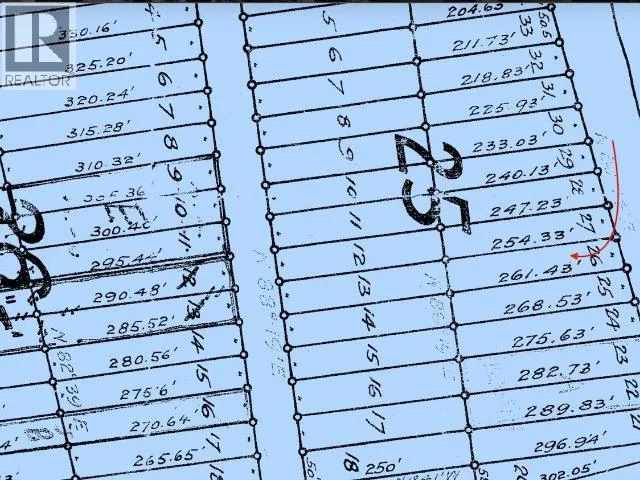 REALTOR
330.16'
325.20'
320.24'
315.28'
310.32'
300.40'
295.44'
290.48'
285.52'
280.56'
275.6'
270.64'
265.65'
5
6
7
8
9
10
11
12
13
14
15
16
17
18
E
N 82°39' E
5
6
7
8
9
10
11
12
13
14
15
16
17
18
250'
25
204.63'
211.73'
218.83'
225.93'
233.03'
240.13'
247.23'
254.33'
261.43'
268.53'
275.63'
282.73'
289.83'
296.94'
302.05'
33
32
31
30
29
28
27
26
25
24
23
22